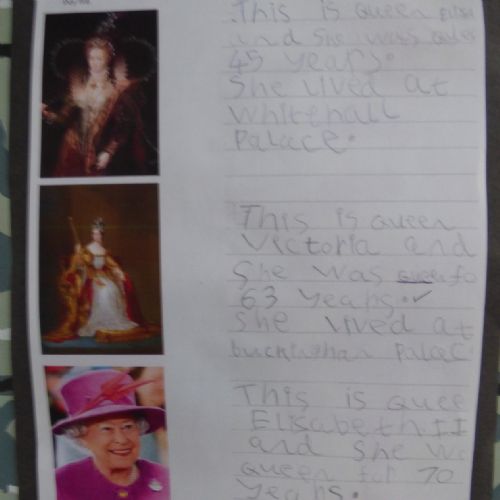 This is queen
and she was queen
45 years.
She lived at
Whitehall
Palace.
This is queen
Victoria and
She was queen fo
63 years.
She lived at
buckinghan Palace
This is quee
Elisabeth II
and she wa
queen for 70
years.